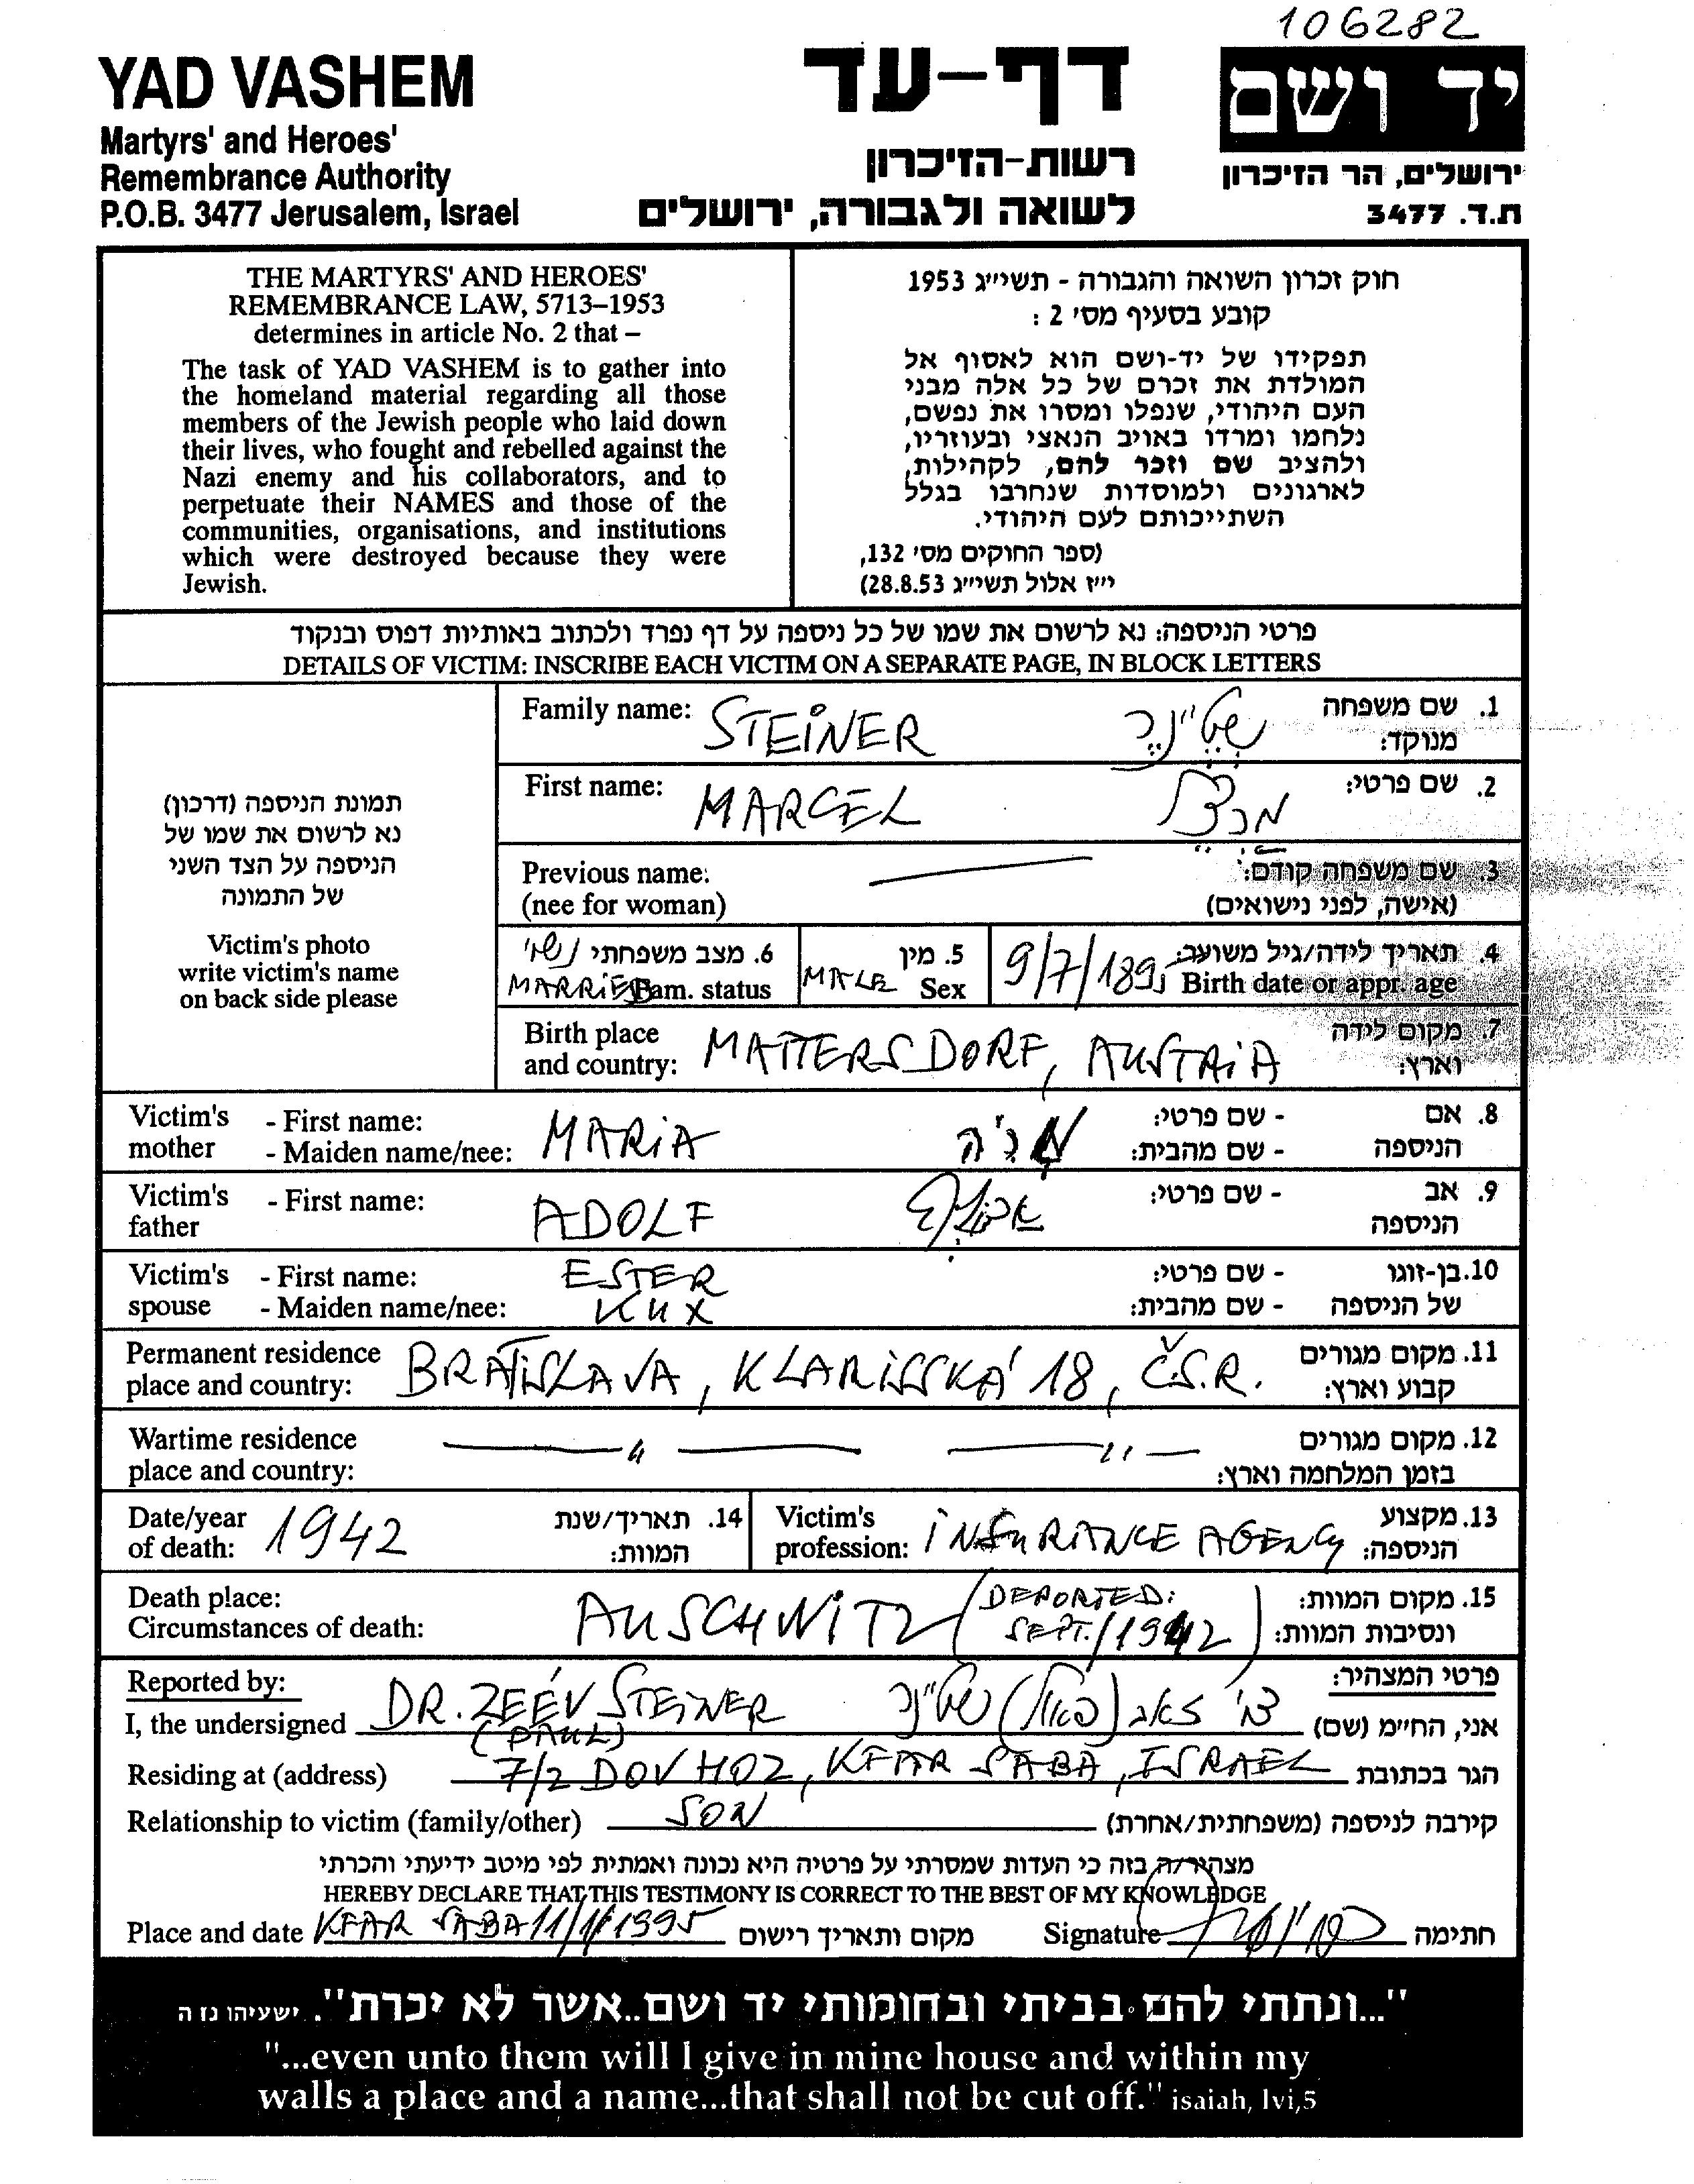 106282
YAD VASHEM
Martyrs' and Heroes'
Remembrance Authority
P.O.B. 3477 Jerusalem, Israel
דף-עד
רשות-הזיכרון
לשואה ולגבורה, ירושלים
יד ושם
ירושלים, הר הזיכרון
ת.ד. 3477
THE MARTYRS' AND HEROES'
REMEMBRANCE LAW, 5713–1953
determines in article No. 2 that –
The task of YAD VASHEM is to gather into
the homeland material regarding all those
members of the Jewish people who laid down
their lives, who fought and rebelled against the
Nazi enemy and his collaborators, and to
perpetuate their NAMES and those of the
communities, organisations, and institutions
which were destroyed because they were
Jewish.
חוק זכרון השואה והגבורה - תשי״ג 1953
קובע בסעיף מס׳ 2 :
תפקידו של יד-ושם הוא לאסוף אל
המולדת את זכרם של כל אלה מבני
העם היהודי, שנפלו ומסרו את נפשם,
נלחמו ומרדו באויב הנאצי ובעוזריו,
ולהציב שם וזכר להם, לקהילות,
לארגונים ולמוסדות שנחרבו בגלל
השתייכותם לעם היהודי.
(ספר החוקים מס׳ 132,
י״ז אלול תשי״ג 28.8.53)
פרטי הניספה: נא לרשום את שמו של כל ניספה על דף נפרד ולכתוב באותיות דפוס ובנקוד
DETAILS OF VICTIM: INSCRIBE EACH VICTIM ON A SEPARATE PAGE, IN BLOCK LETTERS
תמונת הניספה (דרכון)
נא לרשום את שמו של
הניספה על הצד השני
של התמונה
Victim's photo
write victim's name
on back side please
Family name: STEINER שטיינר 1. שם משפחה
מנוקד:
First name: MARCEL מרצל 2. שם פרטי:
Previous name: 3. שם משפחה קודם:
(nee for woman) (אישה, לפני נישואים)
6. מצב משפחתי נשוי 5. מין 4. תאריך לידה/גיל משוער:
MARRIED Fam. status MALE Sex 9/7/1895 Birth date or appr. age
Birth place 7. מקום לידה
and country: MATTERSDORF, AUSTRIA וארץ:
Victim's - First name: - שם פרטי: 8. אם
mother - Maiden name/nee: MARIA - שם מהבית: הניספה
Victim's - First name: ADOLF אדולף - שם פרטי: 9. אב
father הניספה
Victim's - First name: ESTER - שם פרטי: 10. בן-זוגו
spouse - Maiden name/nee: KUX - שם מהבית: של הניספה
Permanent residence 11. מקום מגורים
place and country: BRATISLAVA, KLARISSKÁ 18, Č.S.R. קבוע וארץ:
Wartime residence — " — — " — 12. מקום מגורים
place and country: בזמן המלחמה וארץ:
Date/year 1942 14. תאריך/שנת
of death: המוות:
Victim's 13. מקצוע
profession: INSURANCE AGENCY הניספה:
Death place: AUSCHWITZ (DEPORTED: 15. מקום המוות:
Circumstances of death: SEPT./1942) ונסיבות המוות:
Reported by: פרטי המצהיר:
I, the undersigned DR. ZEÉV STEINER ד״ר זאב (פאול) שטיינר אני, החי״מ (שם)
(PAUL)
Residing at (address) 7/2 DOV HOZ, KFAR SABA, ISRAEL הגר בכתובת
Relationship to victim (family/other) SON קירבה לניספה (משפחתית/אחרת)
מצהיר/ה בזה כי העדות שמסרתי על פרטיה היא נכונה ואמתית לפי מיטב ידיעתי והכרתי
HEREBY DECLARE THAT THIS TESTIMONY IS CORRECT TO THE BEST OF MY KNOWLEDGE
Place and date KFAR SABA מקום ותאריך רישום Signature חתימה
"...ונתתי להם בביתי ובחומותי יד ושם..אשר לא יכרת". ישעיהו נו ה
"...even unto them will I give in mine house and within my
walls a place and a name...that shall not be cut off." isaiah, lvi,5